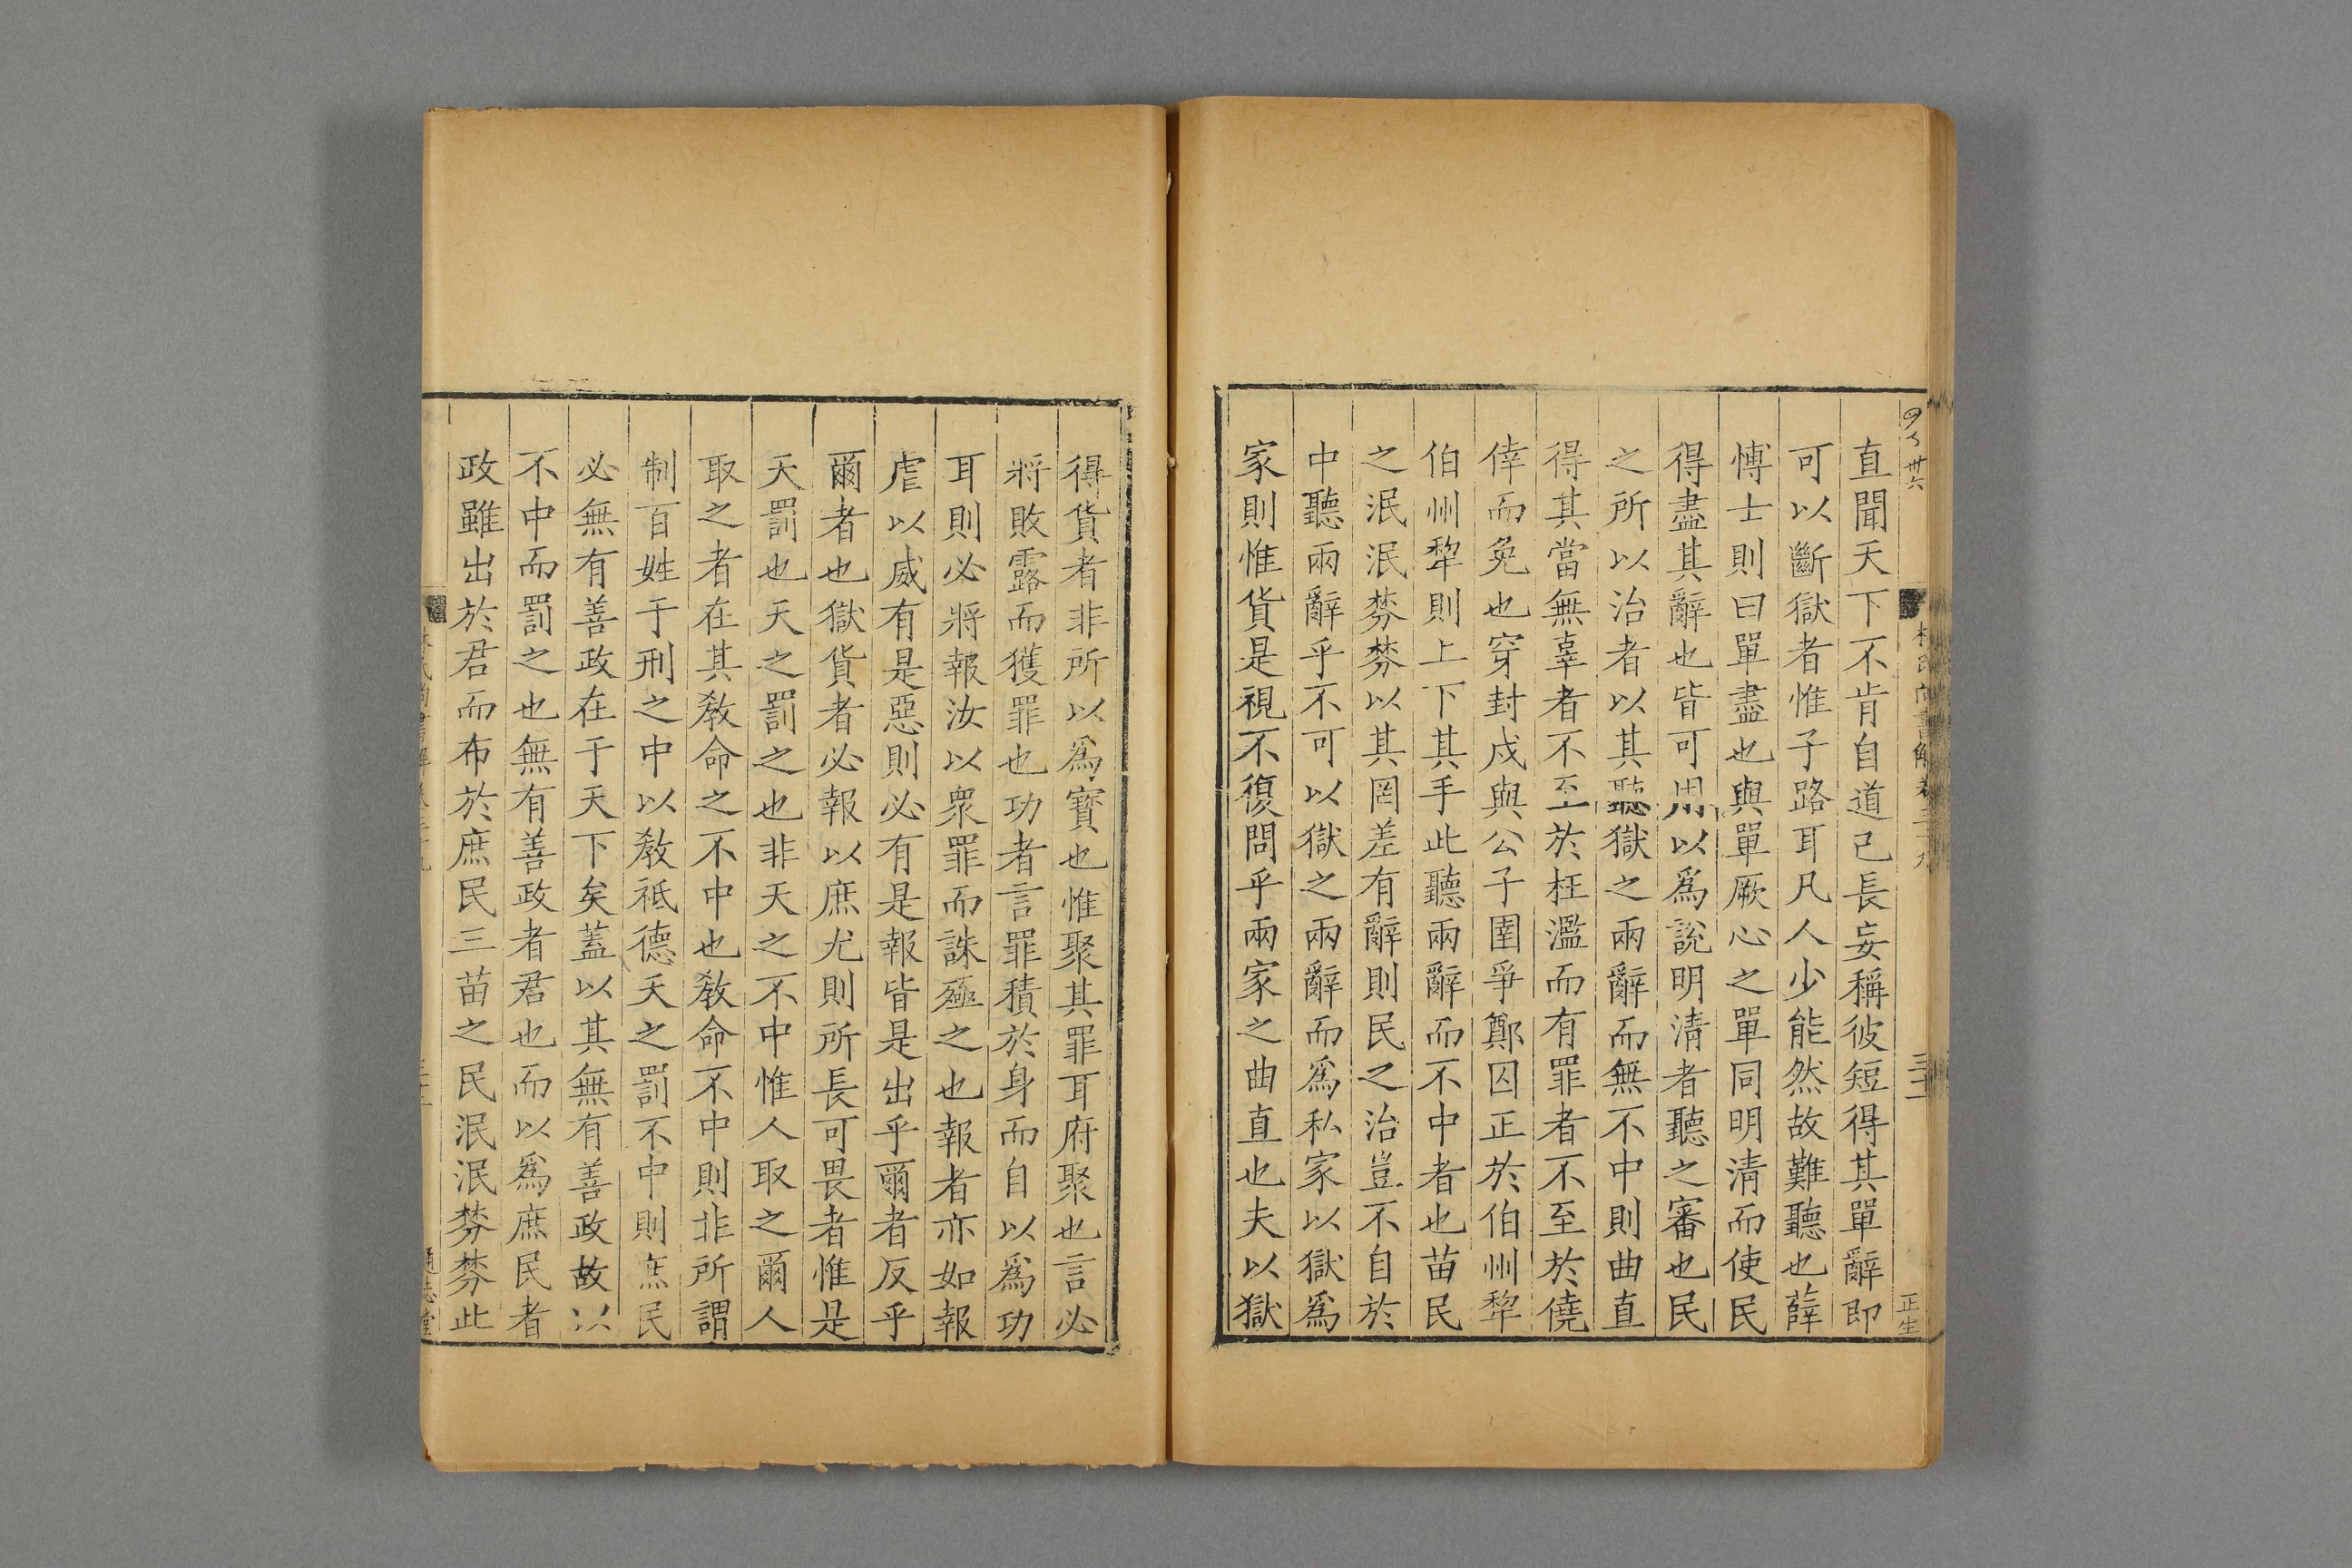 直聞天下不肯自道己長妄稱彼短得其單辭即
可以斷獄者惟子路耳凡人少能然故難聽也薛
博士則曰單盡也與單厥心之單同明清而使民
得盡其辭也皆可用以爲說明清者聽之審也民
之所以治者以其聽獄之兩辭而無不中則曲直
得其當無辜者不至於枉濫而有罪者不至於僥
倖而免也穿封戌與公子圍爭鄭囚正於伯州犂
伯州犂則上下其手此聽兩辭而不中者也苗民
之泯泯棼棼以其罔差有辭則民之治豈不自於
中聽兩辭乎不可以獄之兩辭而爲私家以獄爲
家則惟貨是視不復問乎兩家之曲直也夫以獄
得貨者非所以爲寳也惟聚其罪耳府聚也言必
將敗露而獲罪也功者言罪積於身而自以爲功
耳則必將報汝以衆罪而誅殛之也報者亦如報
虐以威有是惡則必有是報皆是出乎爾者反乎
爾者也獄貨者必報以庶尤則所長可畏者惟是
天罰也天之罰之也非天之不中惟人取之爾人
取之者在其敎命之不中也敎命不中則非所謂
制百姓于刑之中以敎祗德天之罰不中則庶民
必無有善政在于天下矣蓋以其無有善政故以
不中而罰之也無有善政者君也而以爲庶民者
政雖出於君而布於庶民三苗之民泯泯棼棼此
林氏尚書解卷三十九
正生
通志堂